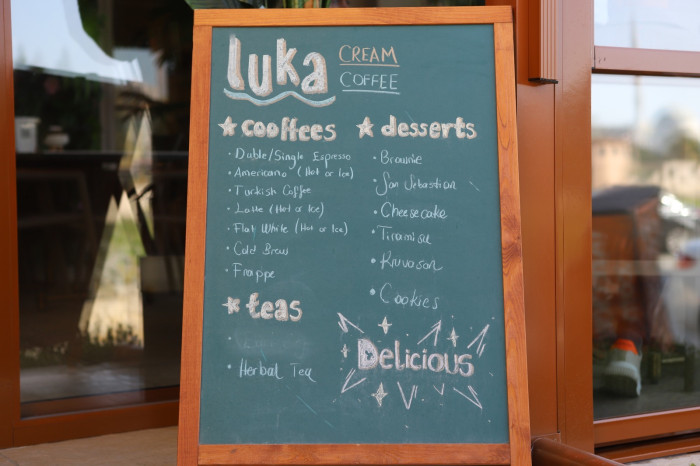 luka CREAM
COFFEE
cooffees
• Duble/Single Espresso
• Americano (Hot or Ice)
• Turkish Coffee
• Latte (Hot or Ice)
• Flat White (Hot or Ice)
• Cold Brew
• Frappe
teas
• Herbal Tea
desserts
• Brownie
• San Sebastian
• Cheesecake
• Tiramisu
• Kruvasan
• Cookies
Delicious